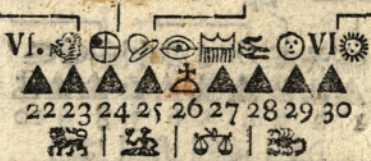 Vſ. VI
22 23 24 25 26 27 28 29 30